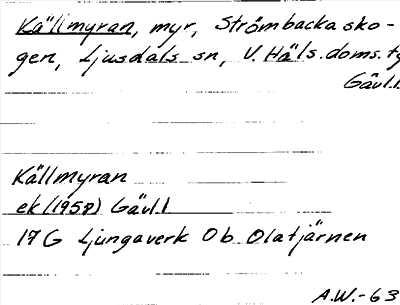 Källmyran, myr, Strömbacka sko-
gen, Ljusdals sn, V. Häls. doms. ty
Gävl.l.
Källmyran
ek (1958) Gävl.l
17 G Ljungaverk Ob Olatjärnen
A.W.-63